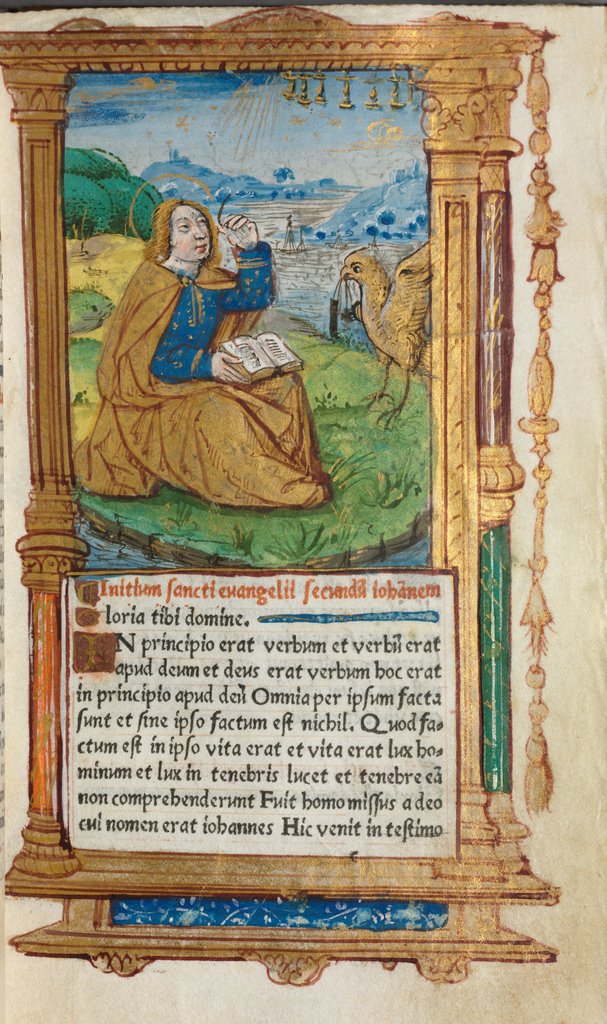 Initium sancti euangelii secundū iohānem
Gloria tibi domine.
IN principio erat verbum et verbū erat
apud deum et deus erat verbum hoc erat
in principio apud deū Omnia per ipsum facta
sunt et sine ipso factum est nichil. Quod fa-
ctum est in ipso vita erat et vita erat lux ho-
minum et lux in tenebris lucet et tenebre eā
non comprehenderunt Fuit homo missus a deo
cui nomen erat iohannes Hic venit in testimo